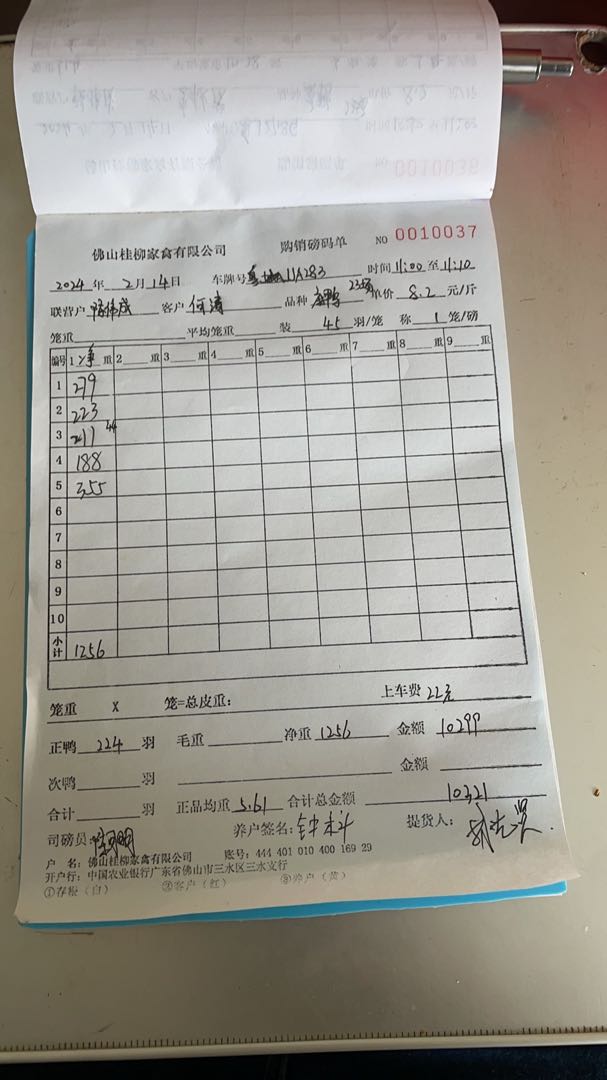 0010036
佛山桂柳家禽有限公司 购销磅码单 NO 0010037
2024年 2月14日 车牌号 11A283 时间 11:00 至 11:10
联营户 客户 何涛 品种 单价 8.2 元/斤
笼重 平均笼重 装 45 羽/笼 称 1 笼/磅
编号 1 净 重 2 重 3 重 4 重 5 重 6 重 7 重 8 重 9 重
1 279
2 223
3 211 44
4 188
5 355
6
7
8
9
10
小计 1256
笼重 X 笼=总皮重: 上车费 22元
正鸭 224 羽 毛重 净重 1256 金额 10299
次鸭 羽 金额
合计 羽 正品均重 5.61 合计总金额 10321
司磅员: 养户签名: 提货人:
户 名: 佛山桂柳家禽有限公司 账号: 444 401 010 400 169 29
开户行: 中国农业银行广东省佛山市三水区三水支行
①存根(白) ②客户(红) ③养户(黄)